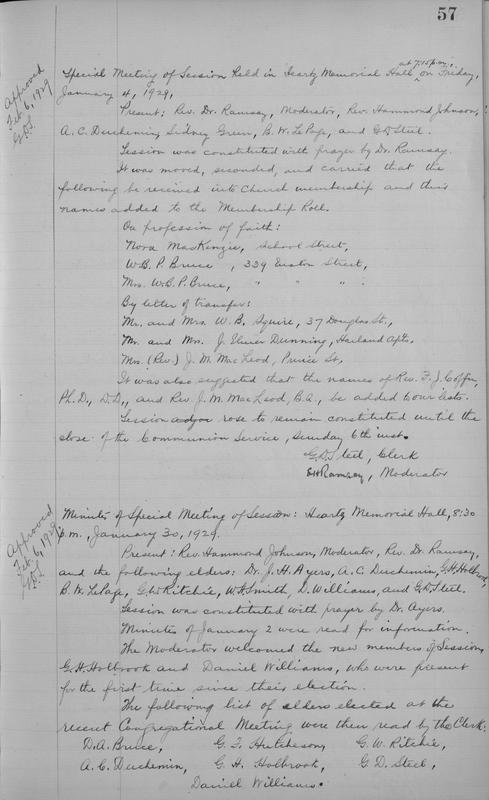 57
Approved
Feb 6, 1929
G.D.S.
at 7:15 p.m.,
Special Meeting of Session held in Heartz Memorial Hall on Friday,
January 4, 1929.
Present: Rev. Dr. Ramsay, Moderator, Rev. Hammond Johnson,
A. C. Duchemin, Sidney Green, B. W. LePage, and G.D. Steel.
Session was constituted with prayer by Dr. Ramsay.
It was moved, seconded, and carried that the
following be received into Church membership and their
names added to the Membership Roll.
On profession of faith:
Nora MacKenzie, School Street,
W.B.P. Bruce, 339 Euston Street,
Mrs. W.B.P. Bruce, " " " :
By letter of transfer:
Mr. and Mrs. W. B. Squire, 37 Douglas St.,
Mr. and Mrs. J. Elmer Dunning, Harland Apts.
Mrs. (Rev.) J. M. MacLeod, Prince St.
It was also suggested that the names of Rev. F. J. Coffin,
Ph.D., D.D., and Rev. J. M. MacLeod, B.A., be added to our lists.
Session rose to remain constituted until the
close of the Communion Service, Sunday 6th inst.
G.D. Steel, Clerk
Ramsay, Moderator
Approved
Feb 6, 1929
G.D.S.
Minutes of Special Meeting of Session: Heartz Memorial Hall, 8:30
p.m., January 30, 1929.
Present: Rev. Hammond Johnson, Moderator, Rev. Dr. Ramsay,
and the following elders: Dr. J. H. Ayers, A. C. Duchemin, G. H. Holbrook,
B. W. LePage, G.W. Ritchie, Smith, D. Williams, and G.D. Steel.
Session was constituted with prayer by Dr. Ayers.
Minutes of January 2 were read for information.
The Moderator welcomed the new members of Session,
G. H. Holbrook and Daniel Williams, who were present
for the first time since their election.
The following list of elders elected at the
recent Congregational Meeting were then read by the Clerk:
D. A. Bruce, G. F. Hutcheson, G. W. Ritchie,
A. C. Duchemin, G. H. Holbrook, G. D. Steel,
Daniel Williams.